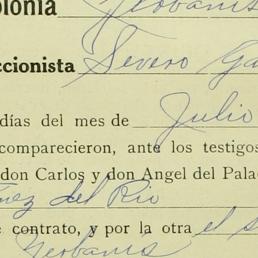 olonia Geobanis
ccionista Severo Ga
días del mes de Julio
comparecieron, ante los testigos
don Carlos y don Angel del Pala
del Rio
contrato, y por la otra el s
Geobanis